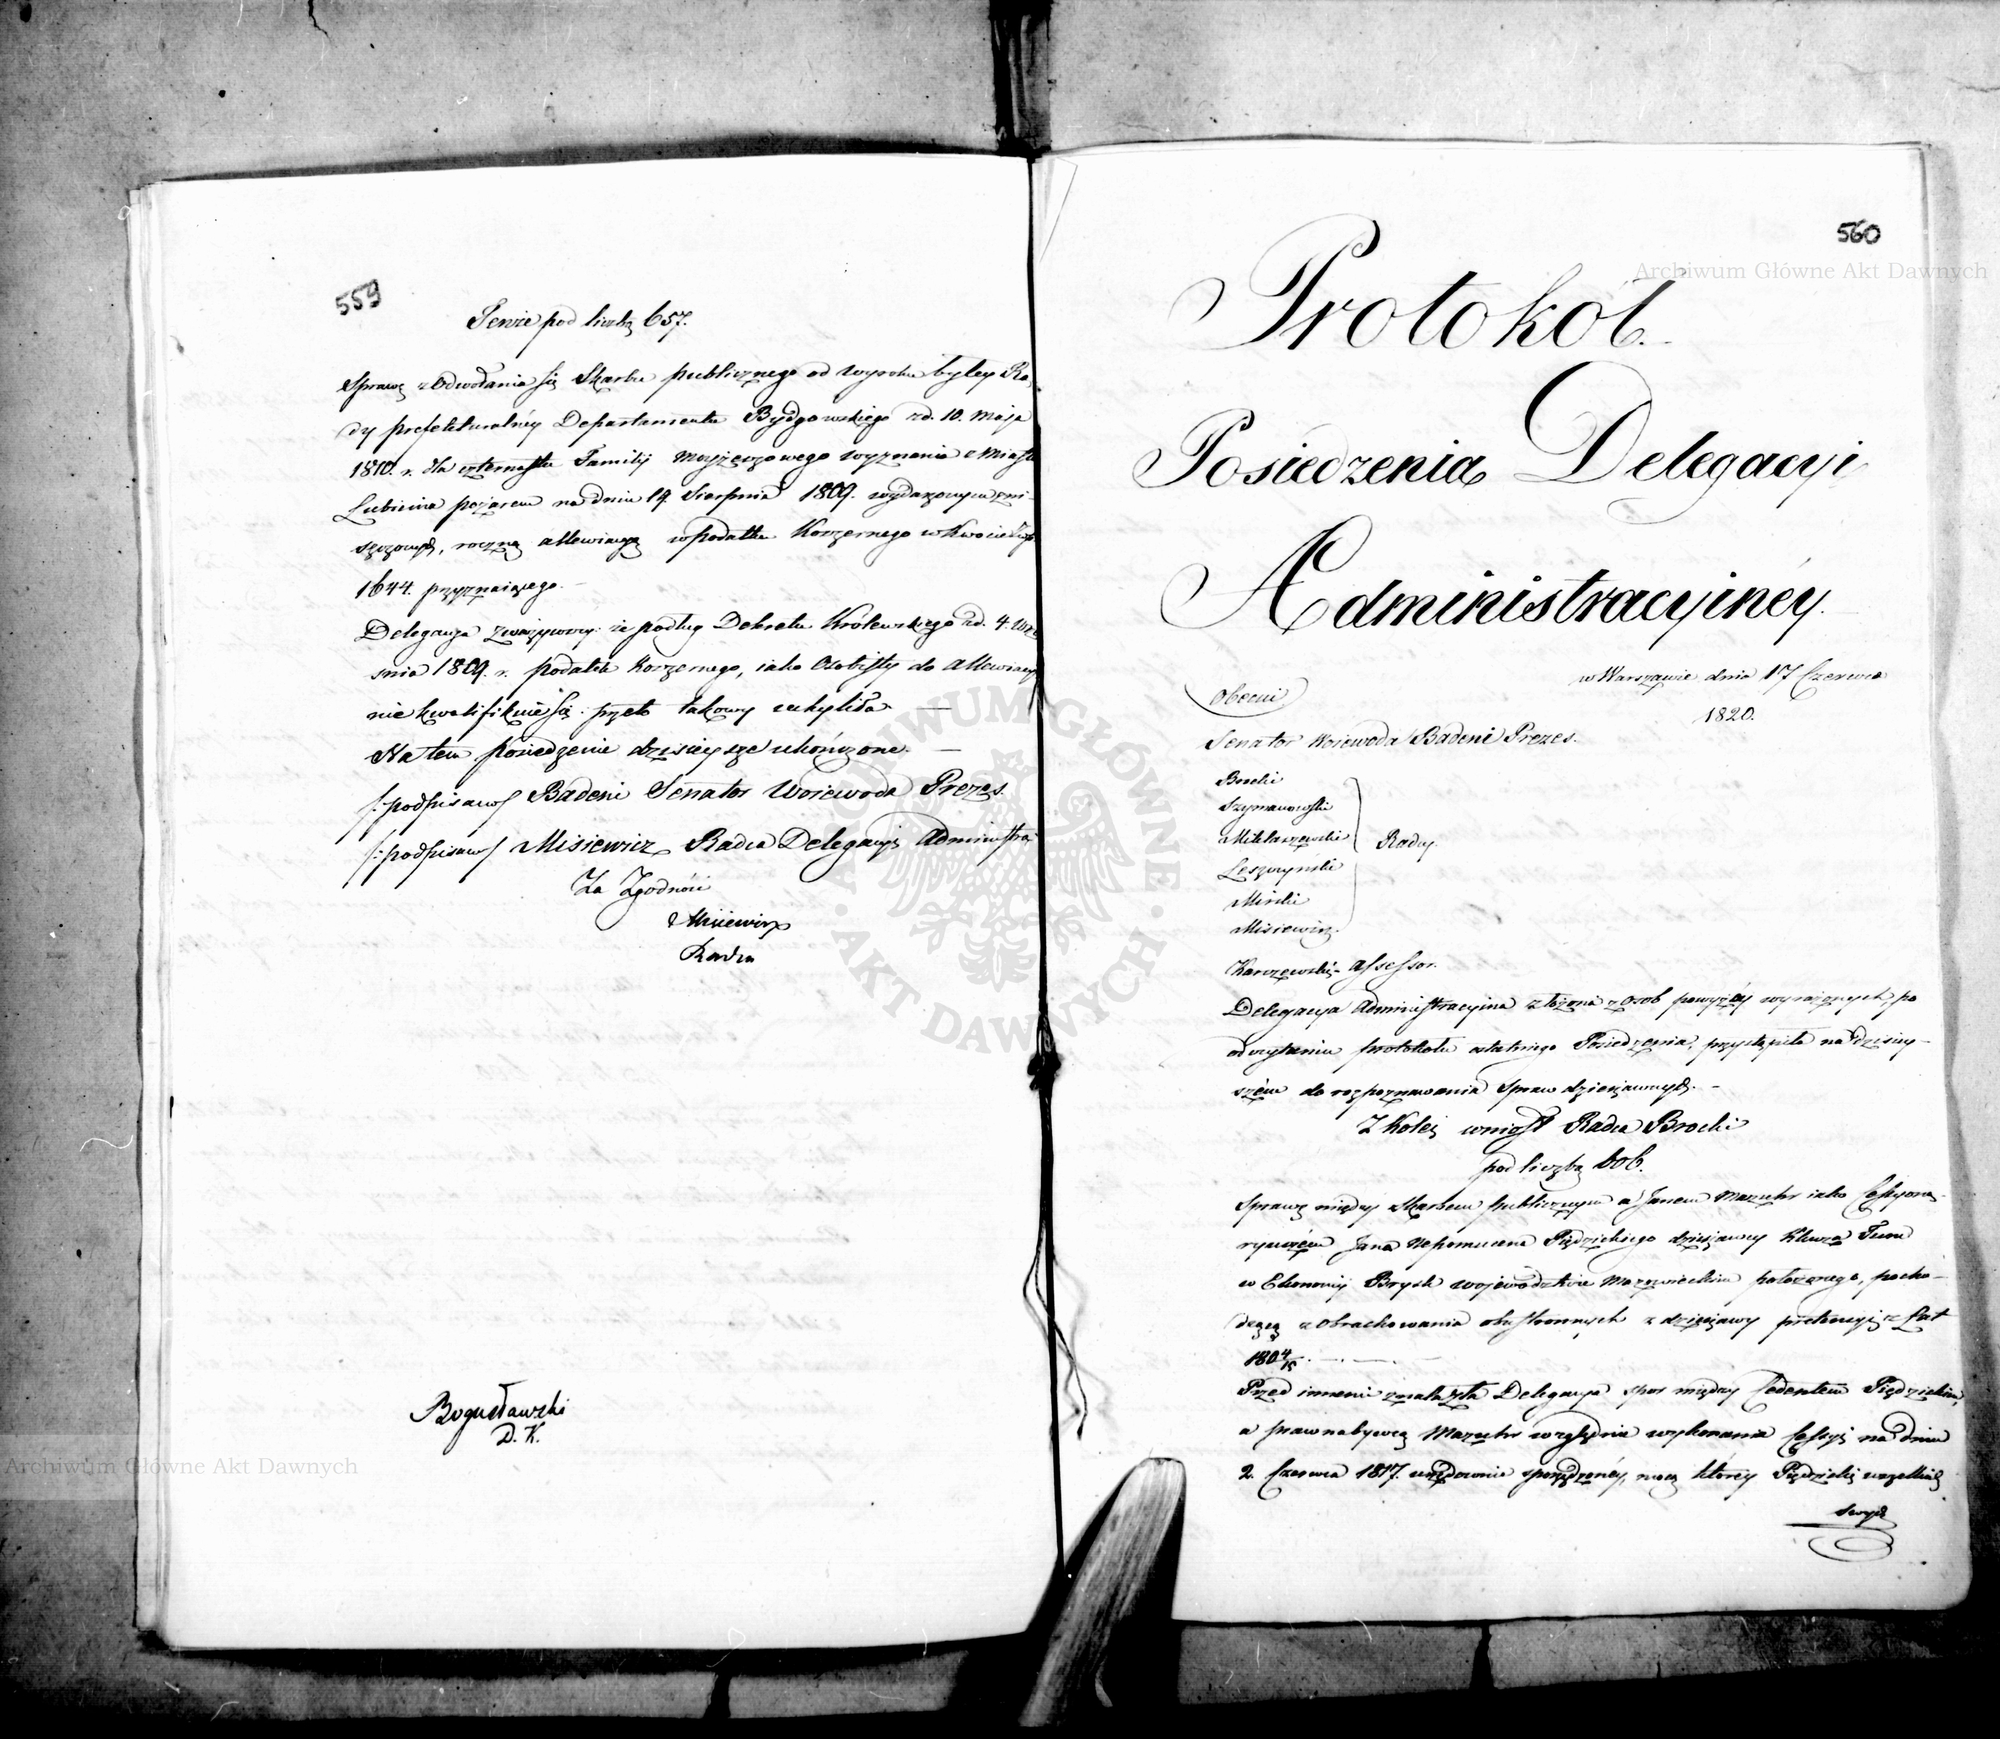 559
Tenże pod liczbą 657.
Sprawę z Odwołania się Skarbu publicznego od wyroku byłey Ra
dy prefekturalnéy Departamentu Bydgowskiego z d. 10. Maja
1810. r. dla czternastu Familij Moyżeszowego wyznania z Miasta
Lubienia pożarem na dniu 14 Sierpnia 1809. wydarzonym zni-
szczonych, roczną allewiacyą w podatku Koszernego w kwocie Złp.
1644. przyznaiącego. —
Delegacya zważywszy: że podług Dekretu Królewskiego z d. 4. Wrze
śnia 1809. r. podatek Koszernego, iako Osobisty do allewiacyi
nie kwalifikuie się: przeto takowy uchyliła. —
Na tem posiedzenie dzisieysze ukończone. —
/:podpisano/ Badeni Senator Woiewoda Prezes.
/:podpisano/ Misiewicz Radca Delegacyi Administrac
Za Zgodność
Misiewicz
Radca
Bogusławski
D. K.
560
Protokół.
Posiedzenia Delegacyi
Administracyinéy.
w Warszawie dnia 17 Czerwca
1820.
Obecni
Senator Woiewoda Badeni Prezes.
Brocki
Szymanowski
Mikłaszewski
Radcy.
Leszczynski
Mirski
Misiewicz.
Karczewski - Assessor.
Delegacya Administracyina złożona z Osob powyżéy wyrażonych, po
odczytaniu protokołu ostatniego Posiedzenia, przystąpiła na dzisiey-
szém do rozpoznawania Spraw dzierżawnych. —
Z kolei wniosł Radca Brocki
pod liczbą 606.
Sprawę między Skarbem publicznym a Janem Mazuhr iako Cessyona-
ryuszem Jana Nepomucena Piędzickiego dzierżawcy Klucza Tum
w Ekonomij Brysk Województwie Mazowieckim położonego, pocho-
dzącą z obrachowania obustronnych z dzierżawy pretensyi z Lat
1804/15. —
Przed innemi znalazła Delegacya spor między Cedentem Piędzickim,
a prawnabywcą Mazuhr względnie wykonania Cessyi na dniu
2. Czerwca 1817. urzędownie sporządzonéy, mocą którey Piędzicki wszelkich
swych
Archiwum Główne Akt Dawnych
Archiwum Główne Akt Dawnych
ARCHIWUM GŁÓWNE · AKT DAWNYCH ·